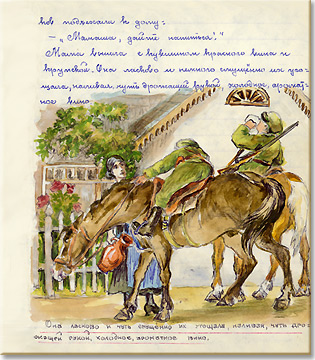 ков подъезжали к дому:
— „Мамаша, дайте напиться!"
Мама вышла с кувшином красного вина и
кружкой. Она ласково и немного смущённо их уго-
щала, наливая, чуть дрожащей рукой, холодное, аромат-
ное вино.
Она ласково и чуть смущённо их угощала наливая, чуть дро-
жащей рукой, холодное, ароматное вино.